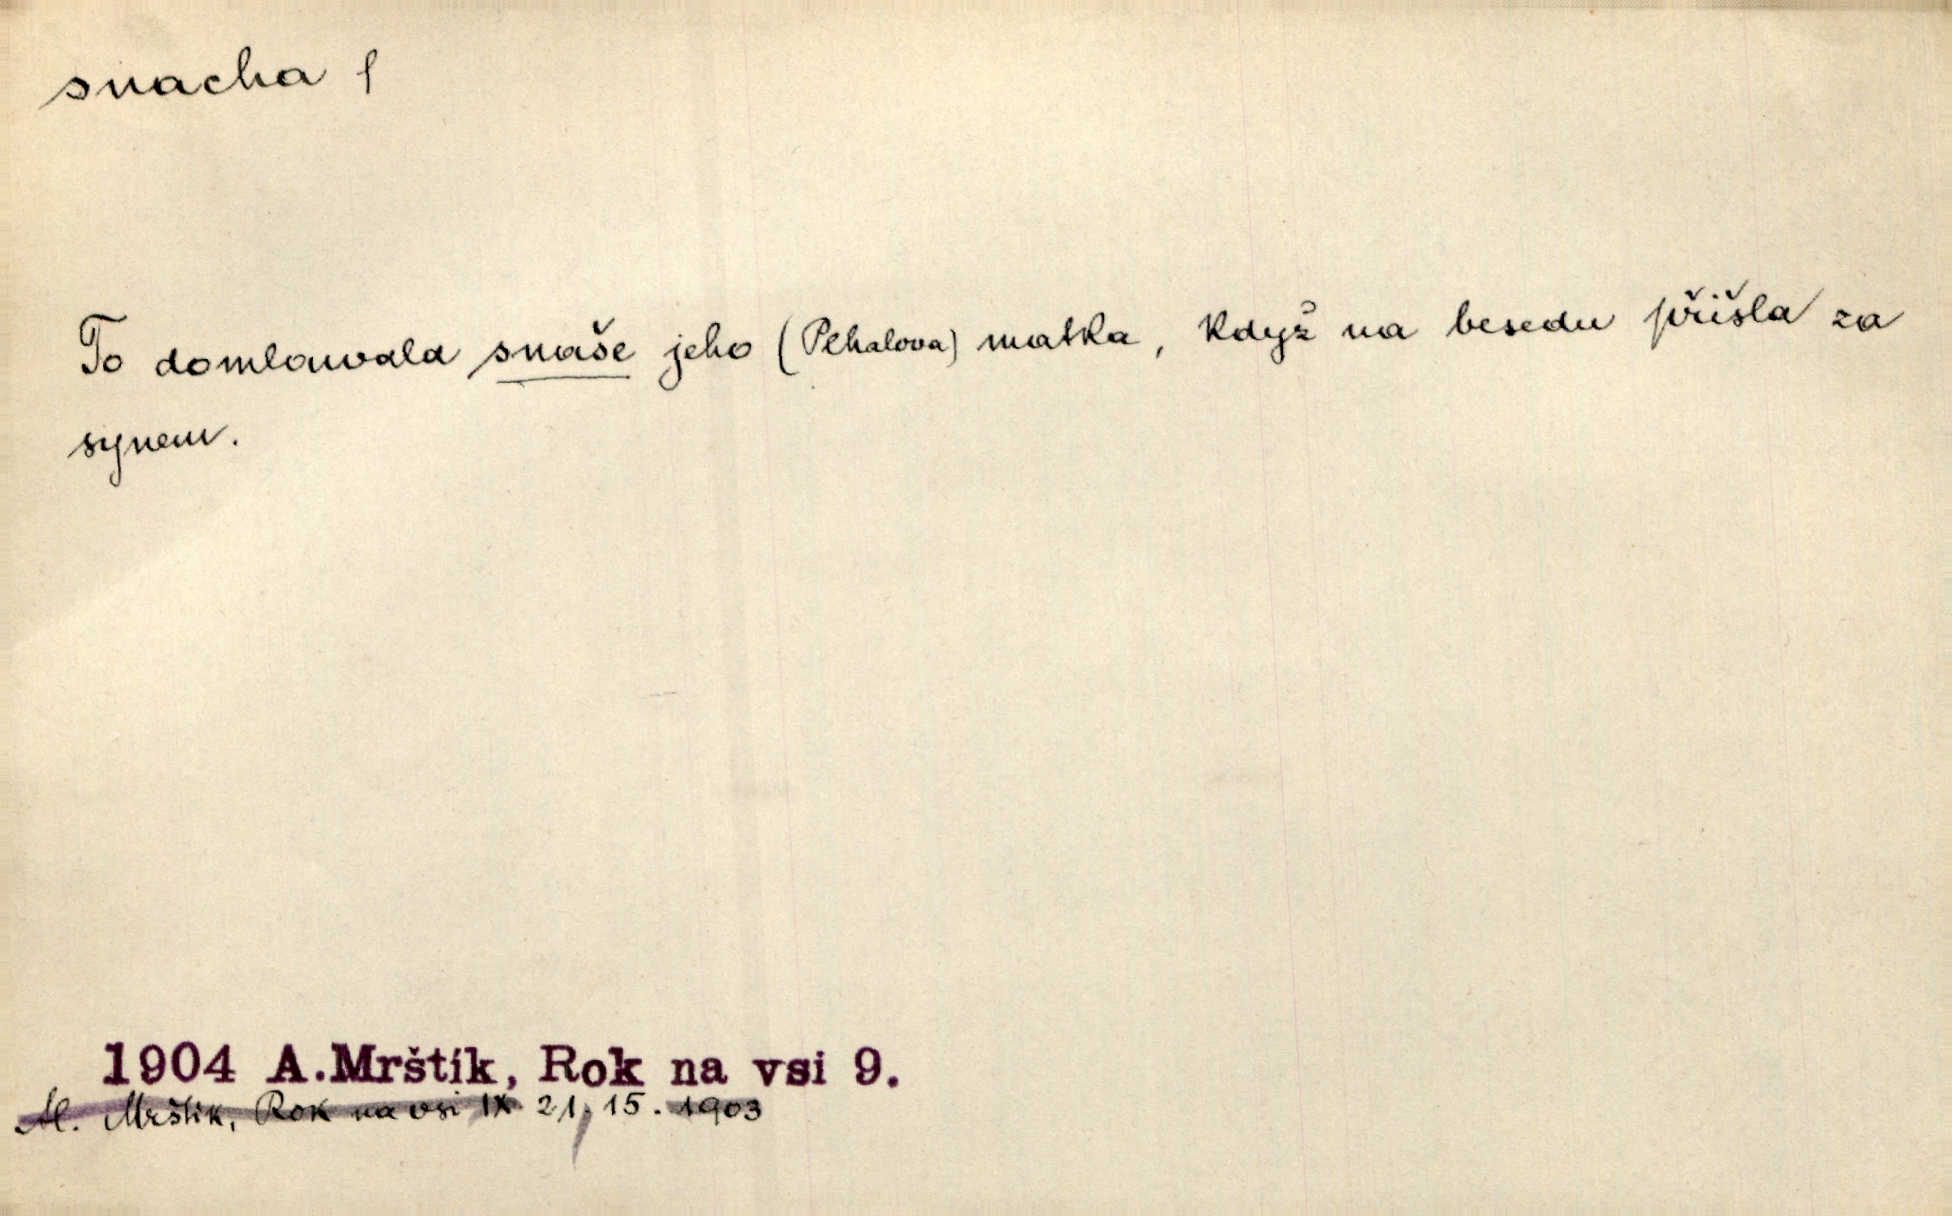 snacha f
To domlouvala snaše jeho (Pehalova) matka, když na besedu přišla za
synem.
1904 A.Mrštík, Rok na vsi 9.
Al. Mrštík, Rok na vsi IX 21, 15. 1903